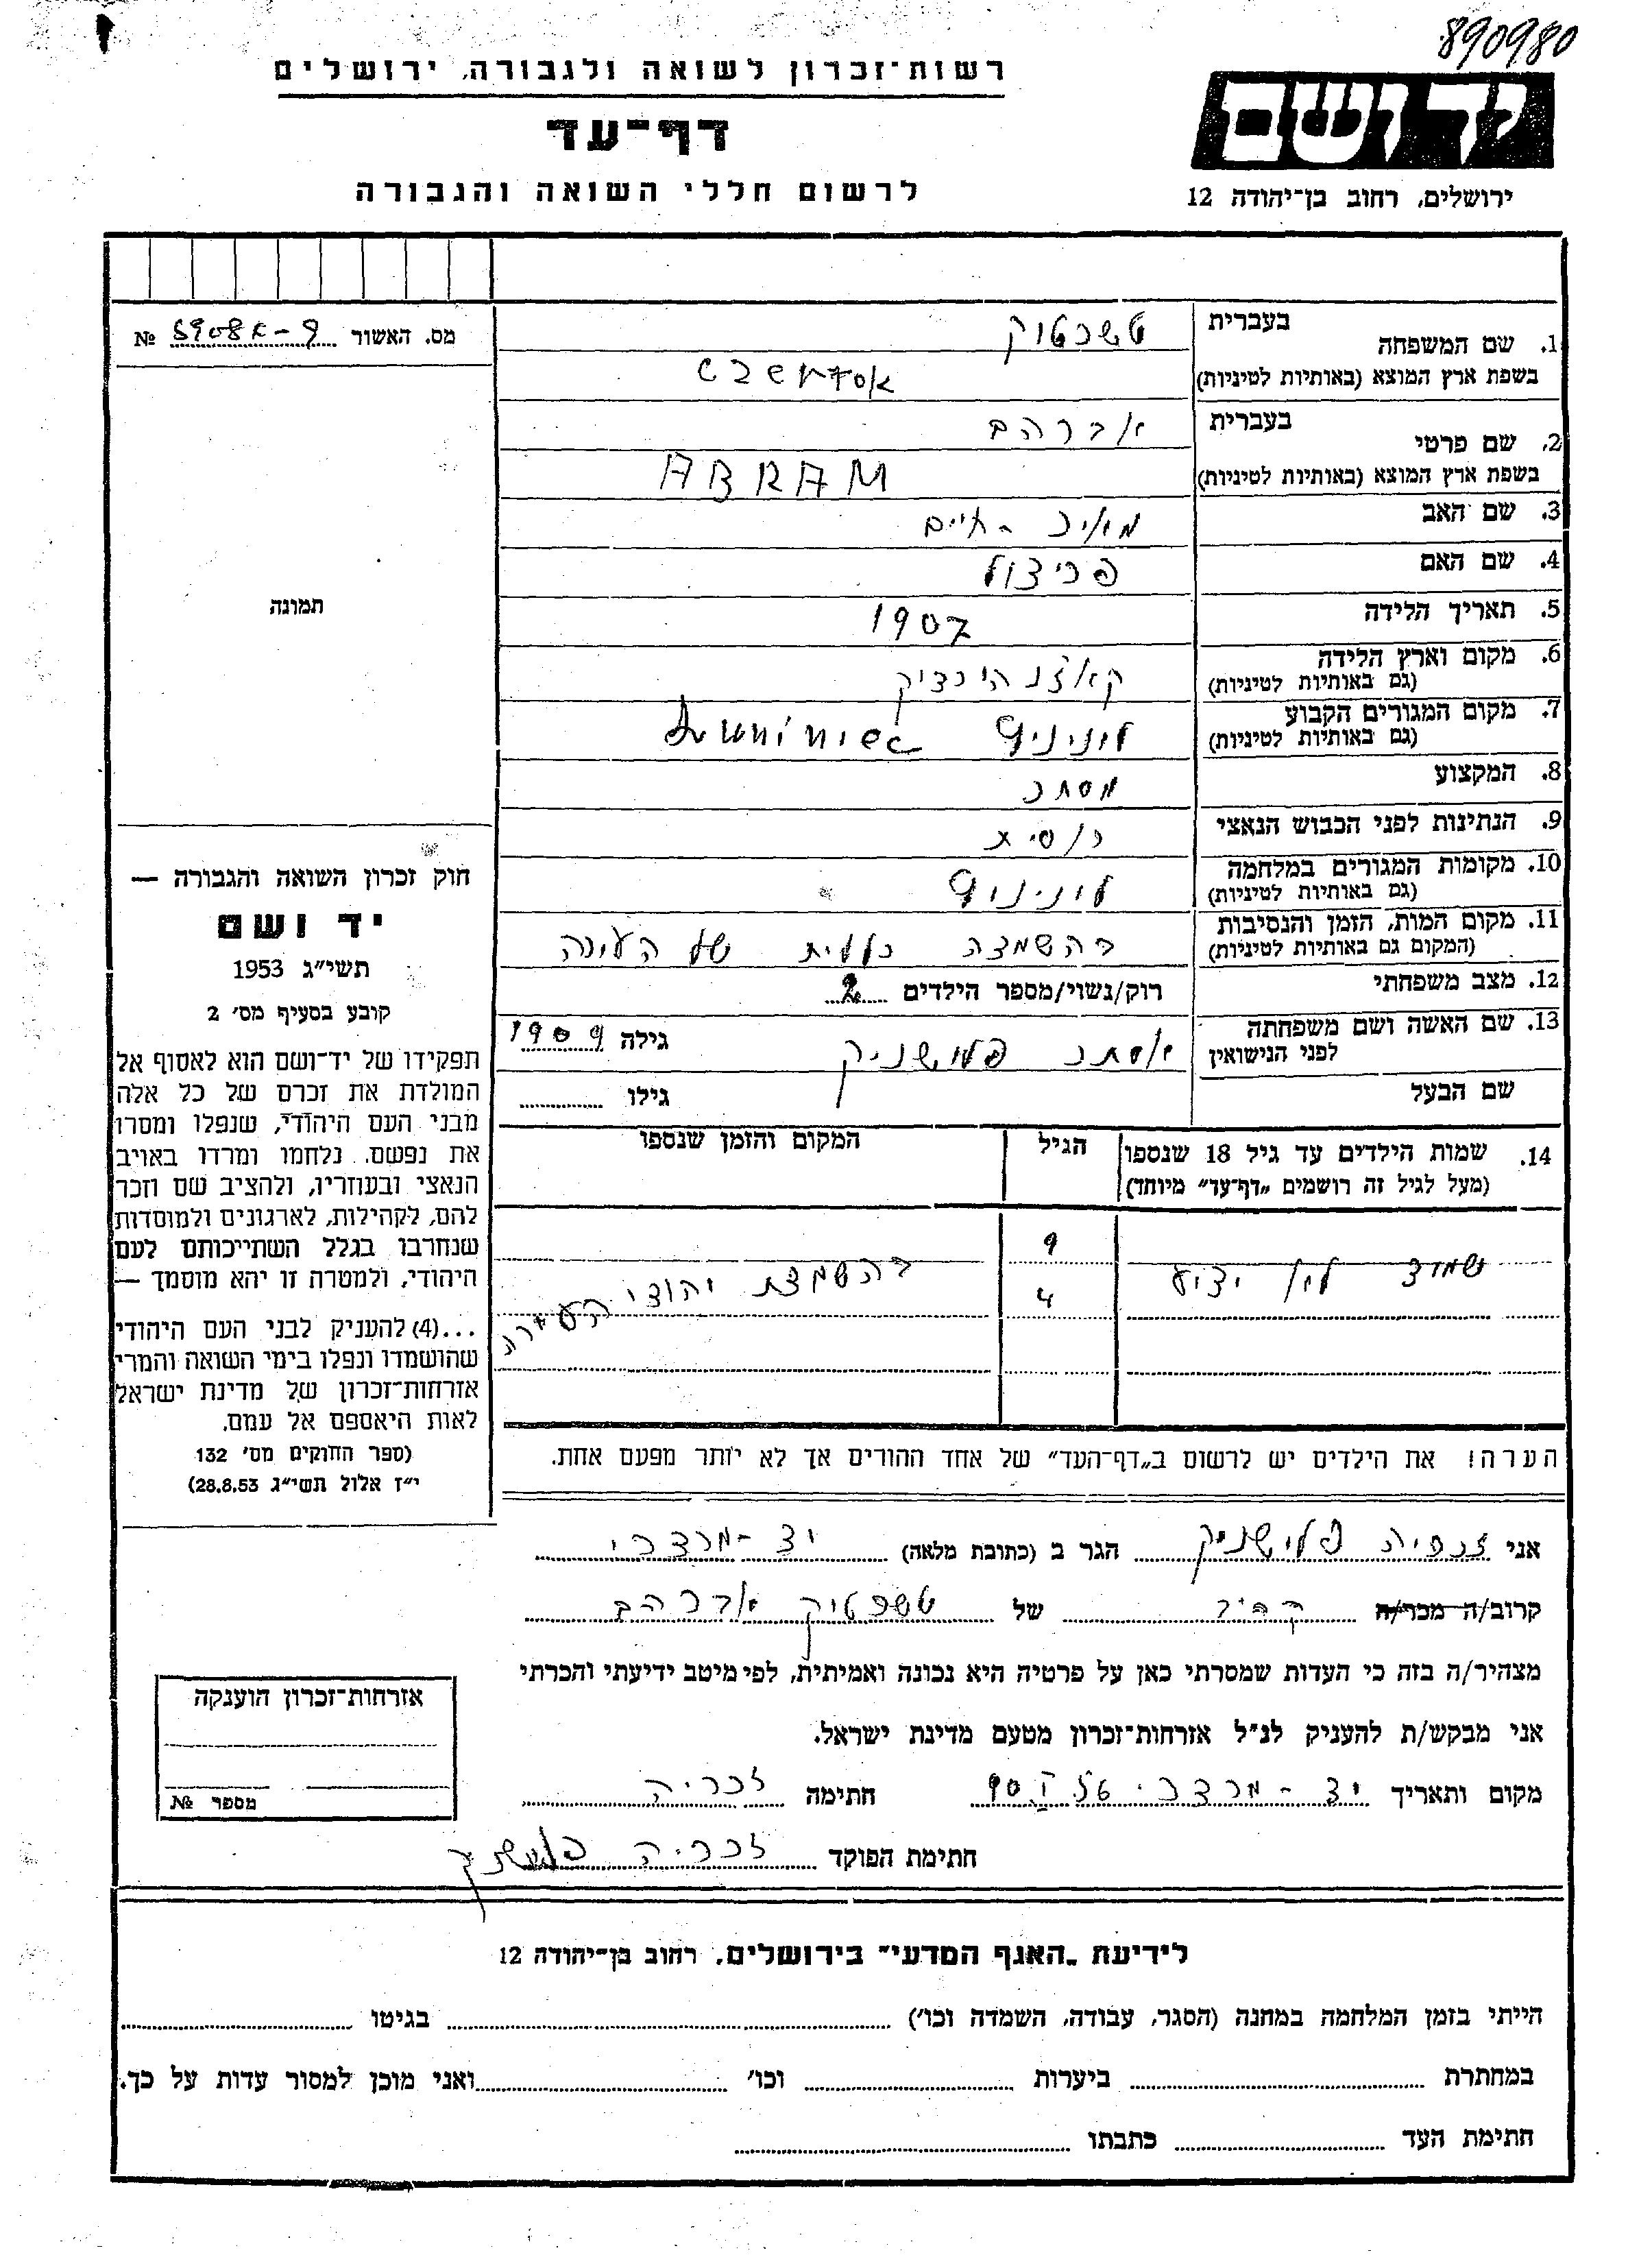 890980
רשות־זכרון לשואה ולגבורה, ירושלים
דף־עד
לרשום חללי השואה והגבורה
יד ושם
ירושלים, רחוב בן־יהודה 12
מס. האשור №
1. שם המשפחה בעברית טשרטוק
בשפת ארץ המוצא (באותיות לטיניות)
2. שם פרטי בעברית אברהם
בשפת ארץ המוצא (באותיות לטיניות) ABRAM
3. שם האב מאיר - חיים
4. שם האם פריצול
5. תאריך הלידה 1907
6. מקום וארץ הלידה
(גם באותיות לטיניות)
7. מקום המגורים הקבוע לונינץ
(גם באותיות לטיניות)
8. המקצוע מסחר
9. הנתינות לפני הכבוש הנאצי רוסית
10. מקומות המגורים במלחמה לונינץ
(גם באותיות לטיניות)
11. מקום המות, הזמן והנסיבות בהשמדה כללית של העירה
(המקום גם באותיות לטיניות)
12. מצב משפחתי רוק/נשוי/מספר הילדים 2
13. שם האשה ושם משפחתה אסתר פלושניק גילה 1909
לפני הנישואין
שם הבעל גילו
14. שמות הילדים עד גיל 18 שנספו הגיל המקום והזמן שנספו
(מעל לגיל זה רושמים „דף־עד” מיוחד)
9
4
בהשמדת יהודי העירה
הערה! את הילדים יש לרשום ב„דף־העד” של אחד ההורים אך לא יותר מפעם אחת.
תמונה
חוק זכרון השואה והגבורה —
יד ושם
תשי״ג 1953
קובע בסעיף מס׳ 2
תפקידו של יד־ושם הוא לאסוף אל
המולדת את זכרם של כל אלה
מבני העם היהודי, שנפלו ומסרו
את נפשם, נלחמו ומרדו באויב
הנאצי ובעוזריו, ולהציב שם וזכר
להם, לקהילות, לארגונים ולמוסדות
שנחרבו בגלל השתייכותם לעם
היהודי, ולמטרה זו יהא מוסמך —
...(4) להעניק לבני העם היהודי
שהושמדו ונפלו בימי השואה והמרי
אזרחות־זכרון של מדינת ישראל
לאות היאספם אל עמם.
(ספר החוקים מס׳ 132
י״ז אלול תשי״ג 28.8.53)
אני זכריה פלושניק הגר ב (כתובת מלאה) יד - מרדכי
קרוב/ה מכר/ה של טשרטוק אברהם
מצהיר/ה בזה כי העדות שמסרתי כאן על פרטיה היא נכונה ואמיתית, לפי מיטב ידיעתי והכרתי
אני מבקש/ת להעניק לנ״ל אזרחות־זכרון מטעם מדינת ישראל.
מקום ותאריך יד - מרדכי חתימה זכריה
חתימת הפוקד זכריה פלושניק
אזרחות־זכרון הוענקה
מספר №
לידיעת „האגף המדעי” בירושלים, רחוב בן־יהודה 12
הייתי בזמן המלחמה במחנה (הסגר, עבודה, השמדה וכו׳) בגיטו
במחתרת ביערות וכו׳ ואני מוכן למסור עדות על כך.
חתימת העד כתבתו